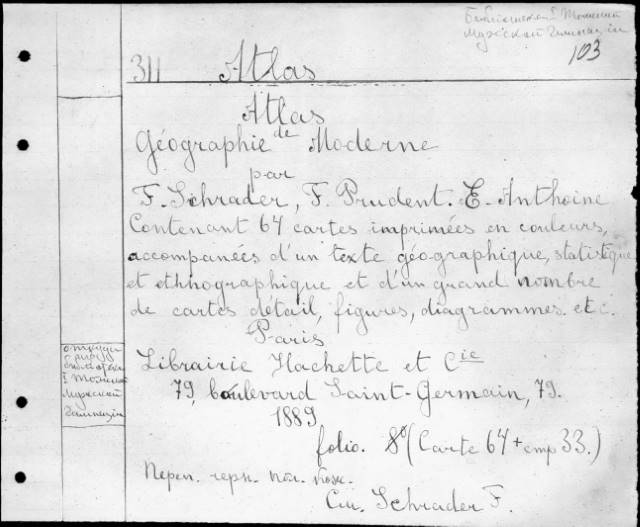 Библиотека I Томской
Мужской Гимназіи
103
311 Atlas
Atlas
de
Géographie Moderne
par
F. Schrader, F. Prudent. E. Anthoine
Contenant 64 cartes imprimées en couleurs,
accompanées d'un texte géographique, statistique
et ethnographique et d'un grand nombre
de cartes détail, figures, diagrammes. etc.
Paris
Librairie Hachette et Cie
79, boulevard Saint-Germain, 79.
1889
folio. 8° (Carte 64 + стр 33.)
I Томской
Мужской
Гимназіи
Переп. черн. кож.
См. Schrader F.